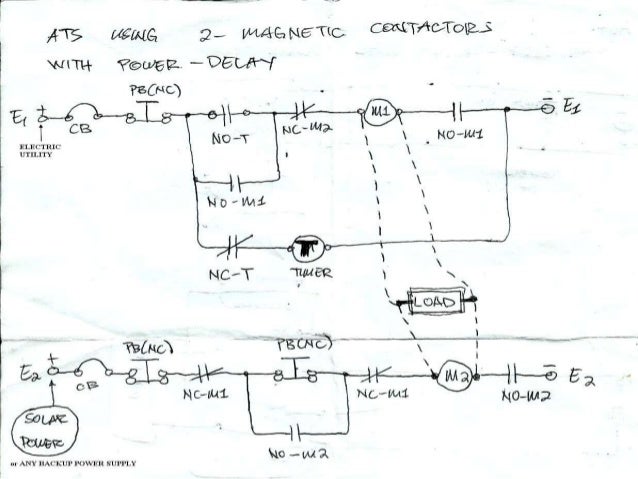 ATS USING 2- MAGNETIC CONTACTORS
WITH POWER - DELAY
PB(NC)
E1 + CB NO-T NC-M2 M1 NO-M1 - E1
ELECTRIC
UTILITY
NO-M1
NC-T TIMER
LOAD
PB(NC) PB(NC)
E2 + CB NC-M1 NC-M1 M2 NO-M2 - E2
NO-M2
SOLAR
POWER
or ANY BACKUP POWER SUPPLY